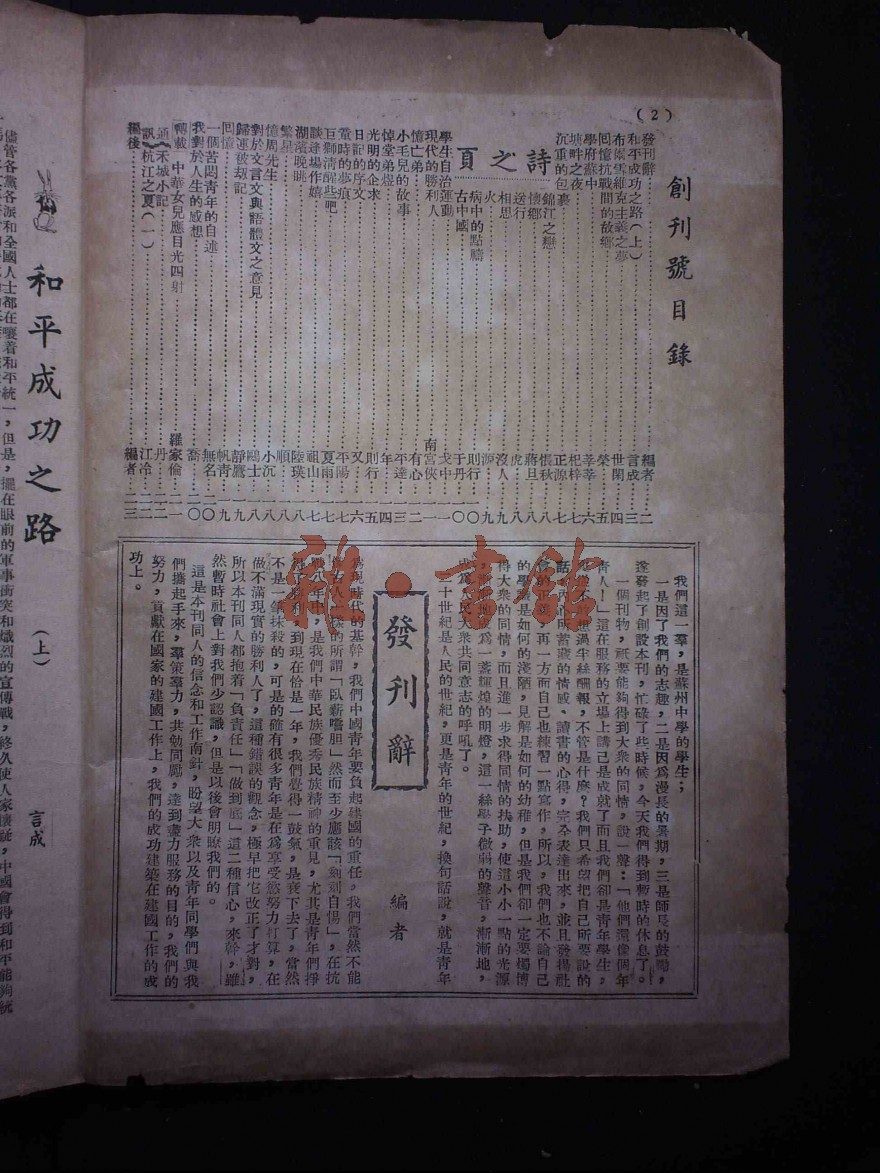 (2)
創刊號目錄
發刊辭 編者 二
和平成功之路(上) 言成 三
布爾雪維克主義之夢 世閑 四
回憶抗戰間的故鄉 榮 五
學府蘇中 莘莘 六
塘畔之夜 杞梓 七
沉重的包裹 正源 七
詩之頁
錦江之戀 悵秋 八
懷鄉 蔣旦 八
送行 虎 八
相思 沒人 九
火 源 九
病中的點騎 則行 一〇
古中國 于丹 一〇
學生自治運動 戈中 一一
現代的勝利人 南宮俠 一一
憶亡弟 有心 一二
小毛兒的故事 平達 一三
悼堂弟煜 年 一四
光明的企求 則行 一五
日記的序文 又 一六
當時的夢痕 平陽 一七
巨獅清醒些吧 夏雨 一七
談逢場作嬉 祖山 一七
湖濱晚眺 陸瑛 一八
繁星 順 一八
憶周先生 小沉 一八
對於文言文與語體文之意見 鷗士 一八
歸運被刼記 靜鷹 一九
回憶 帆青 一九
一個苦悶青年的自述 無名 二〇
我對於人生的感想 喬 二〇
「轉載」中華女兒應目光四射 羅家倫 二一
通訊 禾城小記 丹 二二
杭江之夏(一) 江冷 二二
編後 編者 二三
我們這一羣,是蘇州中學的學生;
一是因了我們的志趣,二是因為漫長的暑期,三是師長的鼓勵,
遂發起了創設本刊,忙碌了些時候,今天我們得到暫時的休息了。
一個刊物,祇要能夠得到大衆的同情,說一聲:「他們還像個年
青人!」這在服務的立場上講已是成就了而且我們卻是青年學生,
絲酬報,不管是什麽?我們只希望把自己所要說的
話,內心所蓄藏的情感、讀書的心得,完全表達出來,並且發揚社
再一方面自己也練習一點寫作,所以,我們也不論自己
的學識是如何的淺陋,見解是如何的幼稚,但是我們卻一定要博
得大衆的同情,而且進一步求得同情的扶助,使這小小一點的光源
,漸漸地成為一盞輝煌的明燈,這一絲學子微弱的聲音,漸漸地,
成為人民大衆共同意志的呼吼了。
二十世紀是人民的世紀,更是青年的世紀,換句話說,就是青年
發刊辭
編者
為現時代的基幹,我們中國青年要負起建國的重任,我們當然不能
像古人一樣的所謂「臥薪嚐胆」然而至少應該「刻刻自惕」,在抗
戰八年中,是我們中華民族優秀民族精神的重見,尤其是青年們掙
得了勝利,到現在恰是一年,我們覺得一鼓氣,是衰下去了,當然
不是一筆抹殺的,可是的確有很多青年是在為享受慾努力打算,在
做不滿現實的勝利人了,這種錯誤的觀念,極早把它改正了才對,
所以本刊同人都抱着「負責任」「做到底」這二種信心,來幹,雖
然暫時社會上對我們少認識,但是以後會明瞭我們的。
這是本刊同人的信念和工作南針,盼望大衆以及青年同學們與我
們攜起手來,羣策羣力,共勉同勵,達到盡力服務的目的,我們的
努力,貢獻在國家的建國工作上,我們的成功建築在建國工作的成
功上。
和平成功之路
(上)
言成
儘管各黨各派和全國人士都在嚷着和平統一,但是,擺在眼前的軍事衝突和熾烈的宣傳戰,終久使人家懷疑,中國會得到和平能夠統
雜·書館